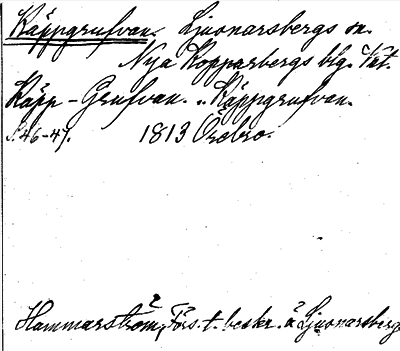 Käppgrufvan. Ljusnarsbergs sn.
Nya Kopparbergs blg. Vnt.
Käpp-Grufvan. „Käppgrufvan.
S. 46-47. 1813 Örebro.
Hammarström, Förs. t. beskr. å Ljusnarsberg